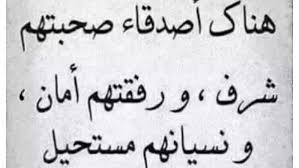 هناك أصدقاء صحبتهم
شرف ، و رفقتهم أمان ،
و نسيانهم مستحيل